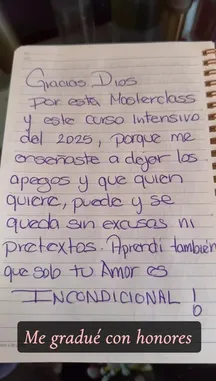 Gracias Dios
por esta Masterclass
y este curso intensivo
del 2025, porque me
enseñaste a dejar los
apegos y que quien
quiere, puede y se
queda sin excusas ni
pretextos. Aprendí también
que solo tu Amor es
INCONDICIONAL !
Me gradué con honores